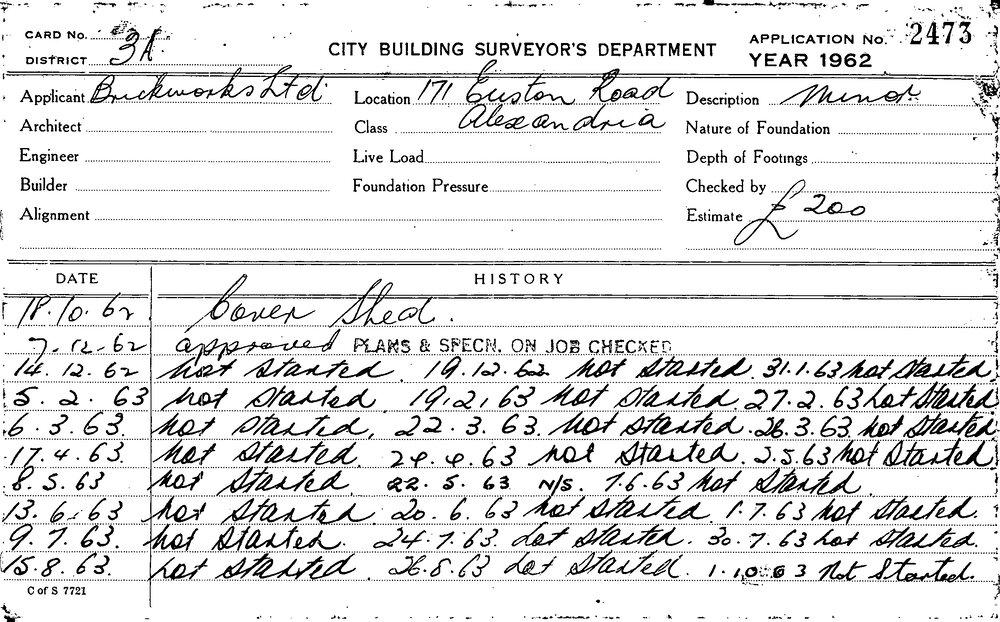 CARD No. 3A CITY BUILDING SURVEYOR'S DEPARTMENT APPLICATION No. 2473
DISTRICT YEAR 1962
Applicant Brickworks Ltd Location 171 Euston Road Description Minor
Architect Class Alexandria Nature of Foundation
Engineer Live Load Depth of Footings
Builder Foundation Pressure Checked by
Alignment Estimate £ 200
DATE HISTORY
18.10.62 Cover Shed.
7.12.62 approved PLANS & SPECN. ON JOB CHECKED
14.12.62 not started. 19.12.62 not started. 31.1.63 not started
5.2.63 not started. 19.2.63 not started. 27.2.63 not started
6.3.63. not started. 22.3.63. not started. 26.3.63. not started.
17.4.63. not started. 24.4.63 not started. 2.5.63 not started
8.5.63 not started. 22.5.63 N/S. 7.6.63 not started.
13.6.63 not started. 20.6.63 not started. 1.7.63 not started.
9.7.63. not started. 24.7.63. not started. 30.7.63 not started.
15.8.63. not started. 26.8.63 not started. 1.10.63 Not Started.
C of S 7721